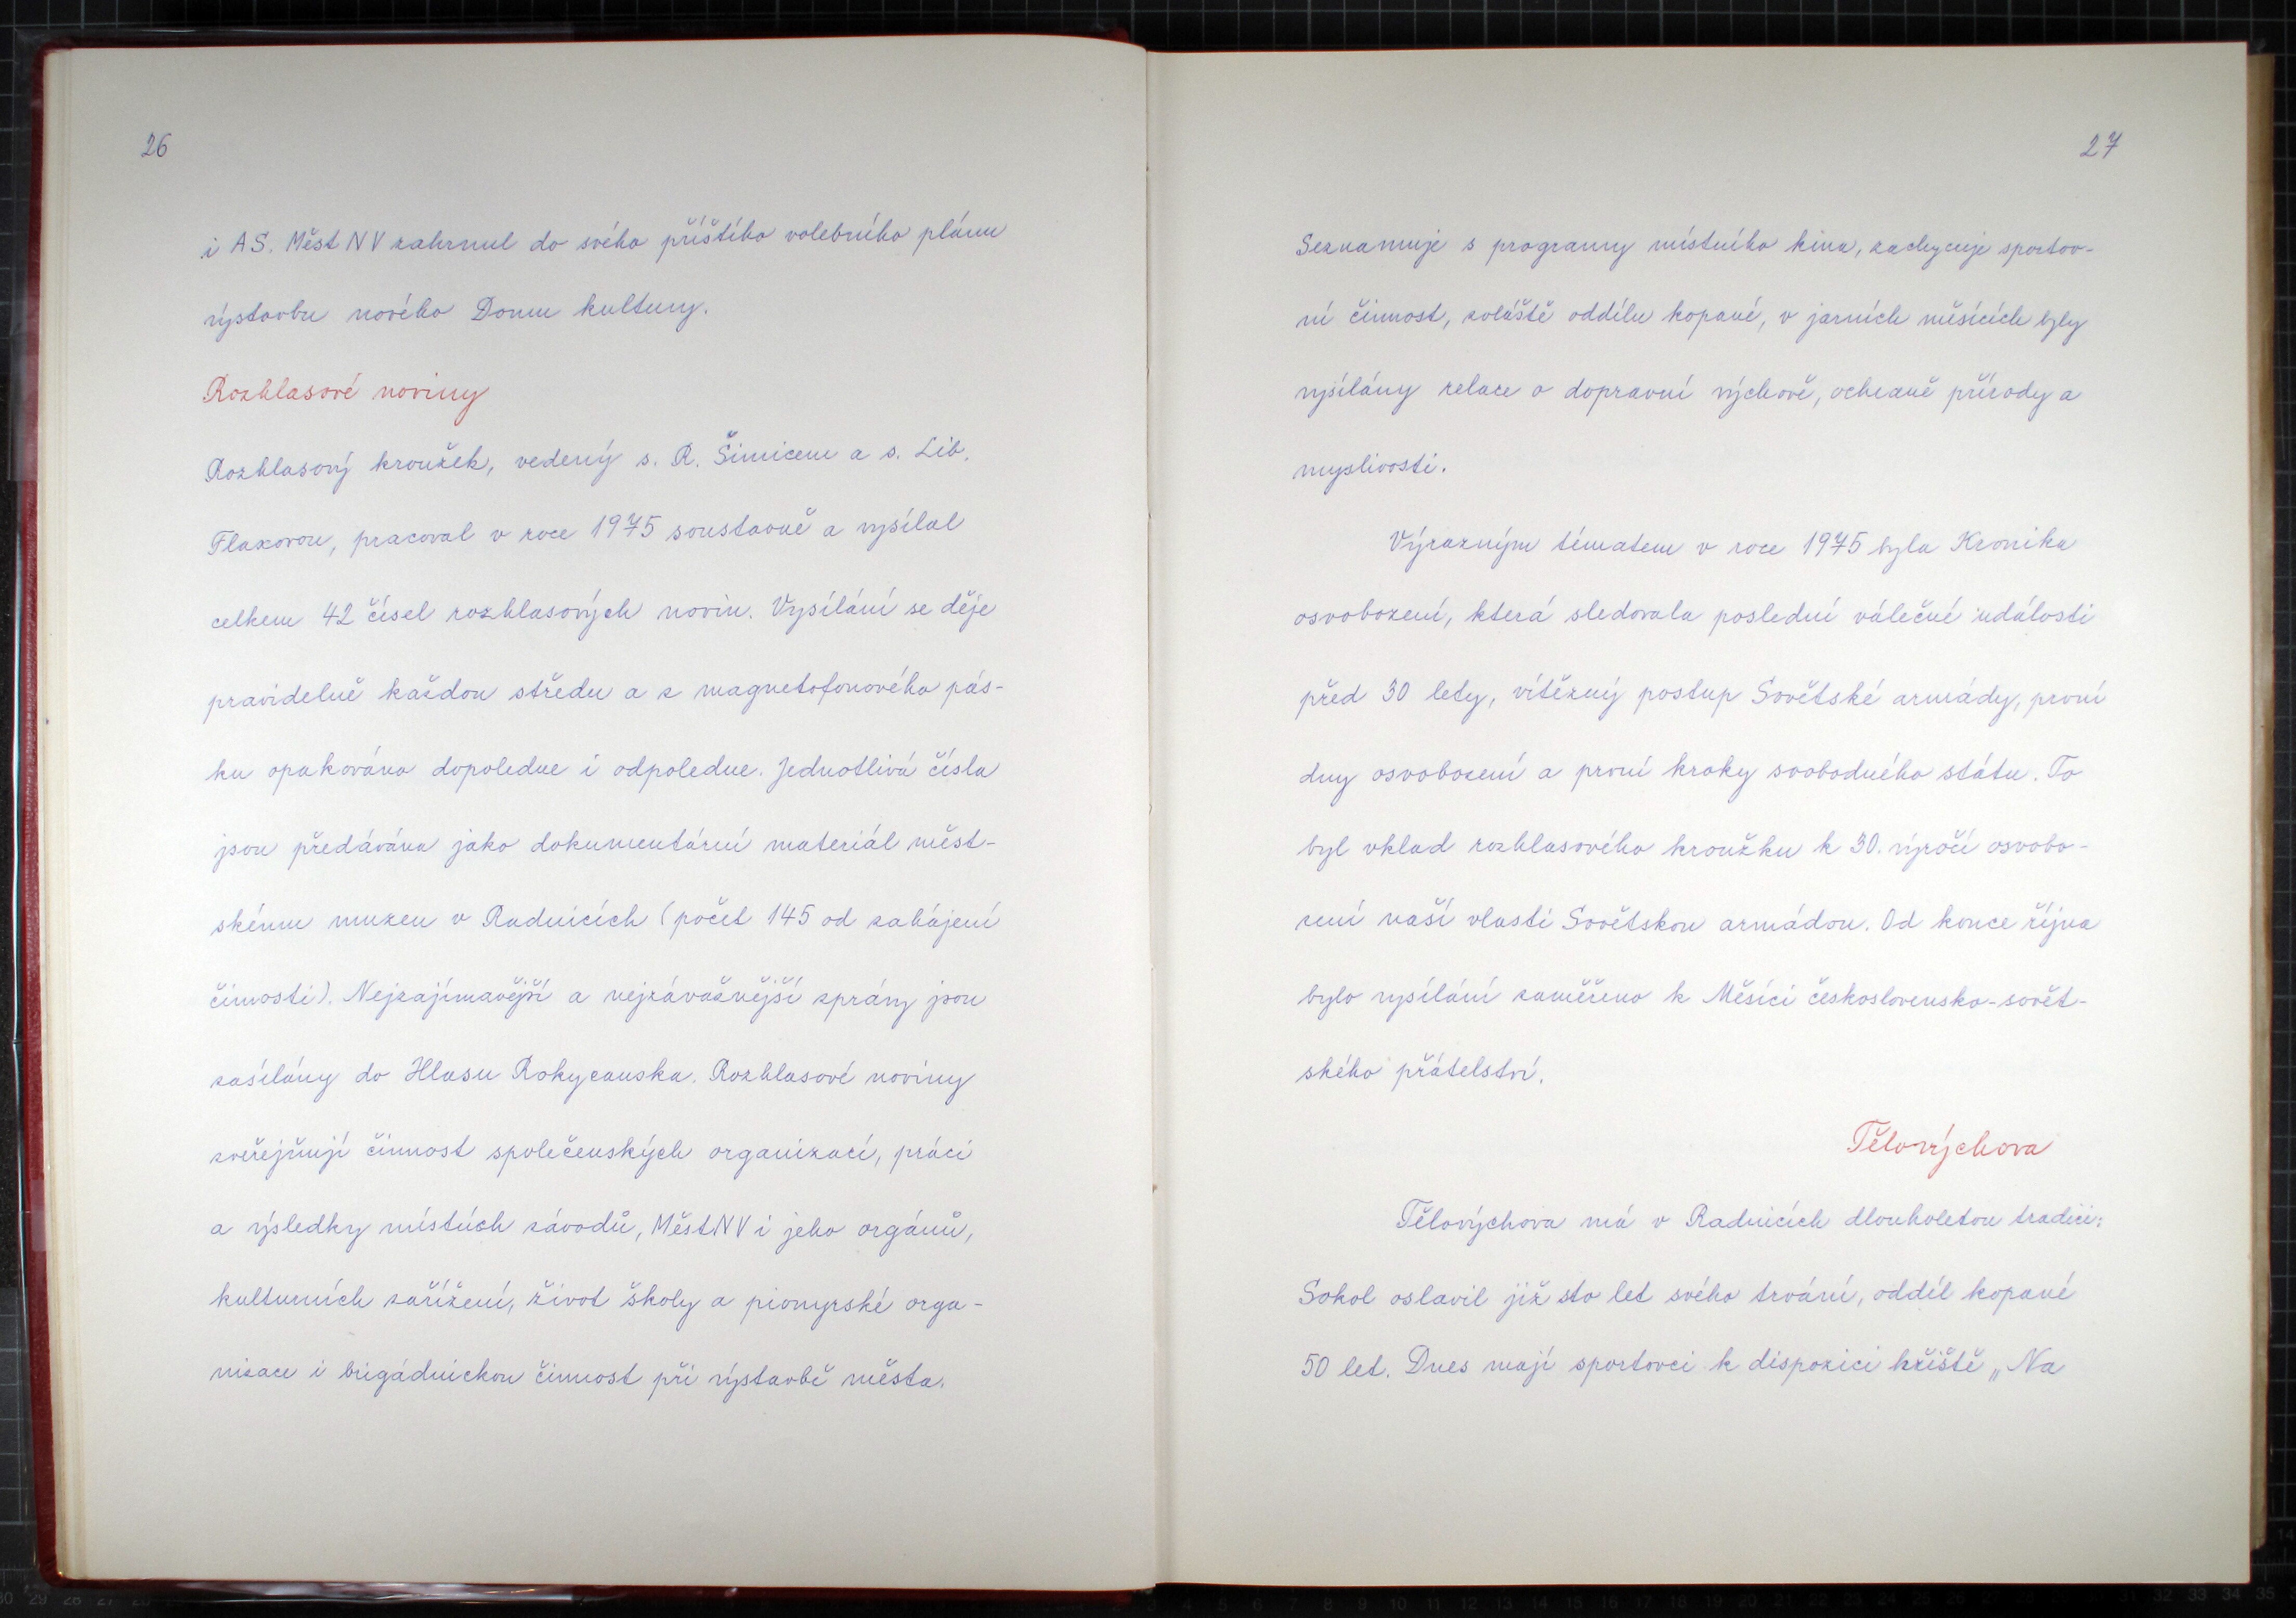 26
i AS. Měst NV zahrnul do svého příštího volebního plánu
výstavbu nového Domu kultury.
Rozhlasové noviny
Rozhlasový kroužek, vedený s. R. Šimicem a s. Lib.
Flaxovou, pracoval v roce 1975 soustavně a vysílal
celkem 42 čísel rozhlasových novin. Vysílání se děje
pravidelně každou středu a z magnetofonového pás-
ku opakováno dopoledne i odpoledne. Jednotlivá čísla
jsou předávána jako dokumentární materiál měst-
skému muzeu v Radnicích (počet 145 od zahájení
činnosti). Nejzajímavější a nejzávažnější zprávy jsou
zasílány do Hlasu Rokycanska. Rozhlasové noviny
zveřejňují činnost společenských organizací, práci
a výsledky místních závodů, MěstNV i jeho orgánů,
kulturních zařížení, život školy a pionýrské orga-
nizace i brigádnickou činnost při výstavbě města.
27
Seznamuje s programy místního kina, zachycuje sportov-
ní činnost, zvláště oddílu kopané, v jarních měsících byly
vysílány relace o dopravní výchově, ochraně přírody a
myslivosti.
Výrazným tématem v roce 1975 byla Kronika
osvobození, která sledovala poslední válečné události
před 30 lety, vítězný postup Sovětské armády, první
dny osvobození a první kroky svobodného státu. To
byl vklad rozhlasového kroužku k 30. výročí osvobo-
zení naší vlasti Sovětskou armádou. Od konce října
bylo vysílání zaměřeno k Měsíci československo-sovět-
ského přátelství.
Tělovýchova
Tělovýchova má v Radnicích dlouholetou tradici:
Sokol oslavil již sto let svého trvání, oddíl kopané
50 let. Dnes mají sportovci k dispozici hřiště „Na